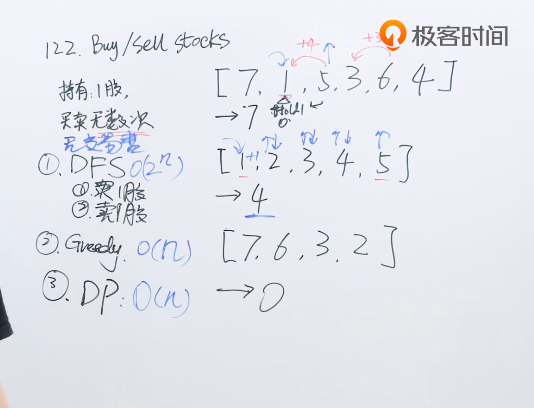 极客时间
122. Buy/Sell stocks
+4
+3
[7, 1, 5, 3, 6, 4]
持有:1股,
→7
买卖无数次
无交易费
①. DFS O(2ⁿ)
+1
[1, 2, 3, 4, 5]
①买1股
→4
②卖1股
②. Greedy. O(n)
[7, 6, 3, 2]
③. DP: O(n)
→0